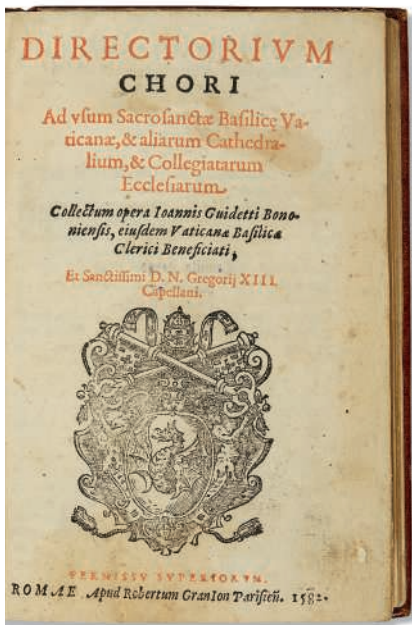 DIRECTORIVM
CHORI
Ad vsum Sacrosanctæ Basilicę Va-
ticanæ, & aliarum Cathedra-
lium, & Collegiatarum
Ecclesiarum.
Collectum opera Ioannis Guidetti Bono-
niensis, eiusdem Vaticanæ Basilicæ
Clerici Beneficiati,
Et Sanctissimi D. N. Gregorij XIII.
Capellani.
PERMISSV SVPERIORVM.
ROMAE Apud Robertum GranIon Parisien̄. 1582.